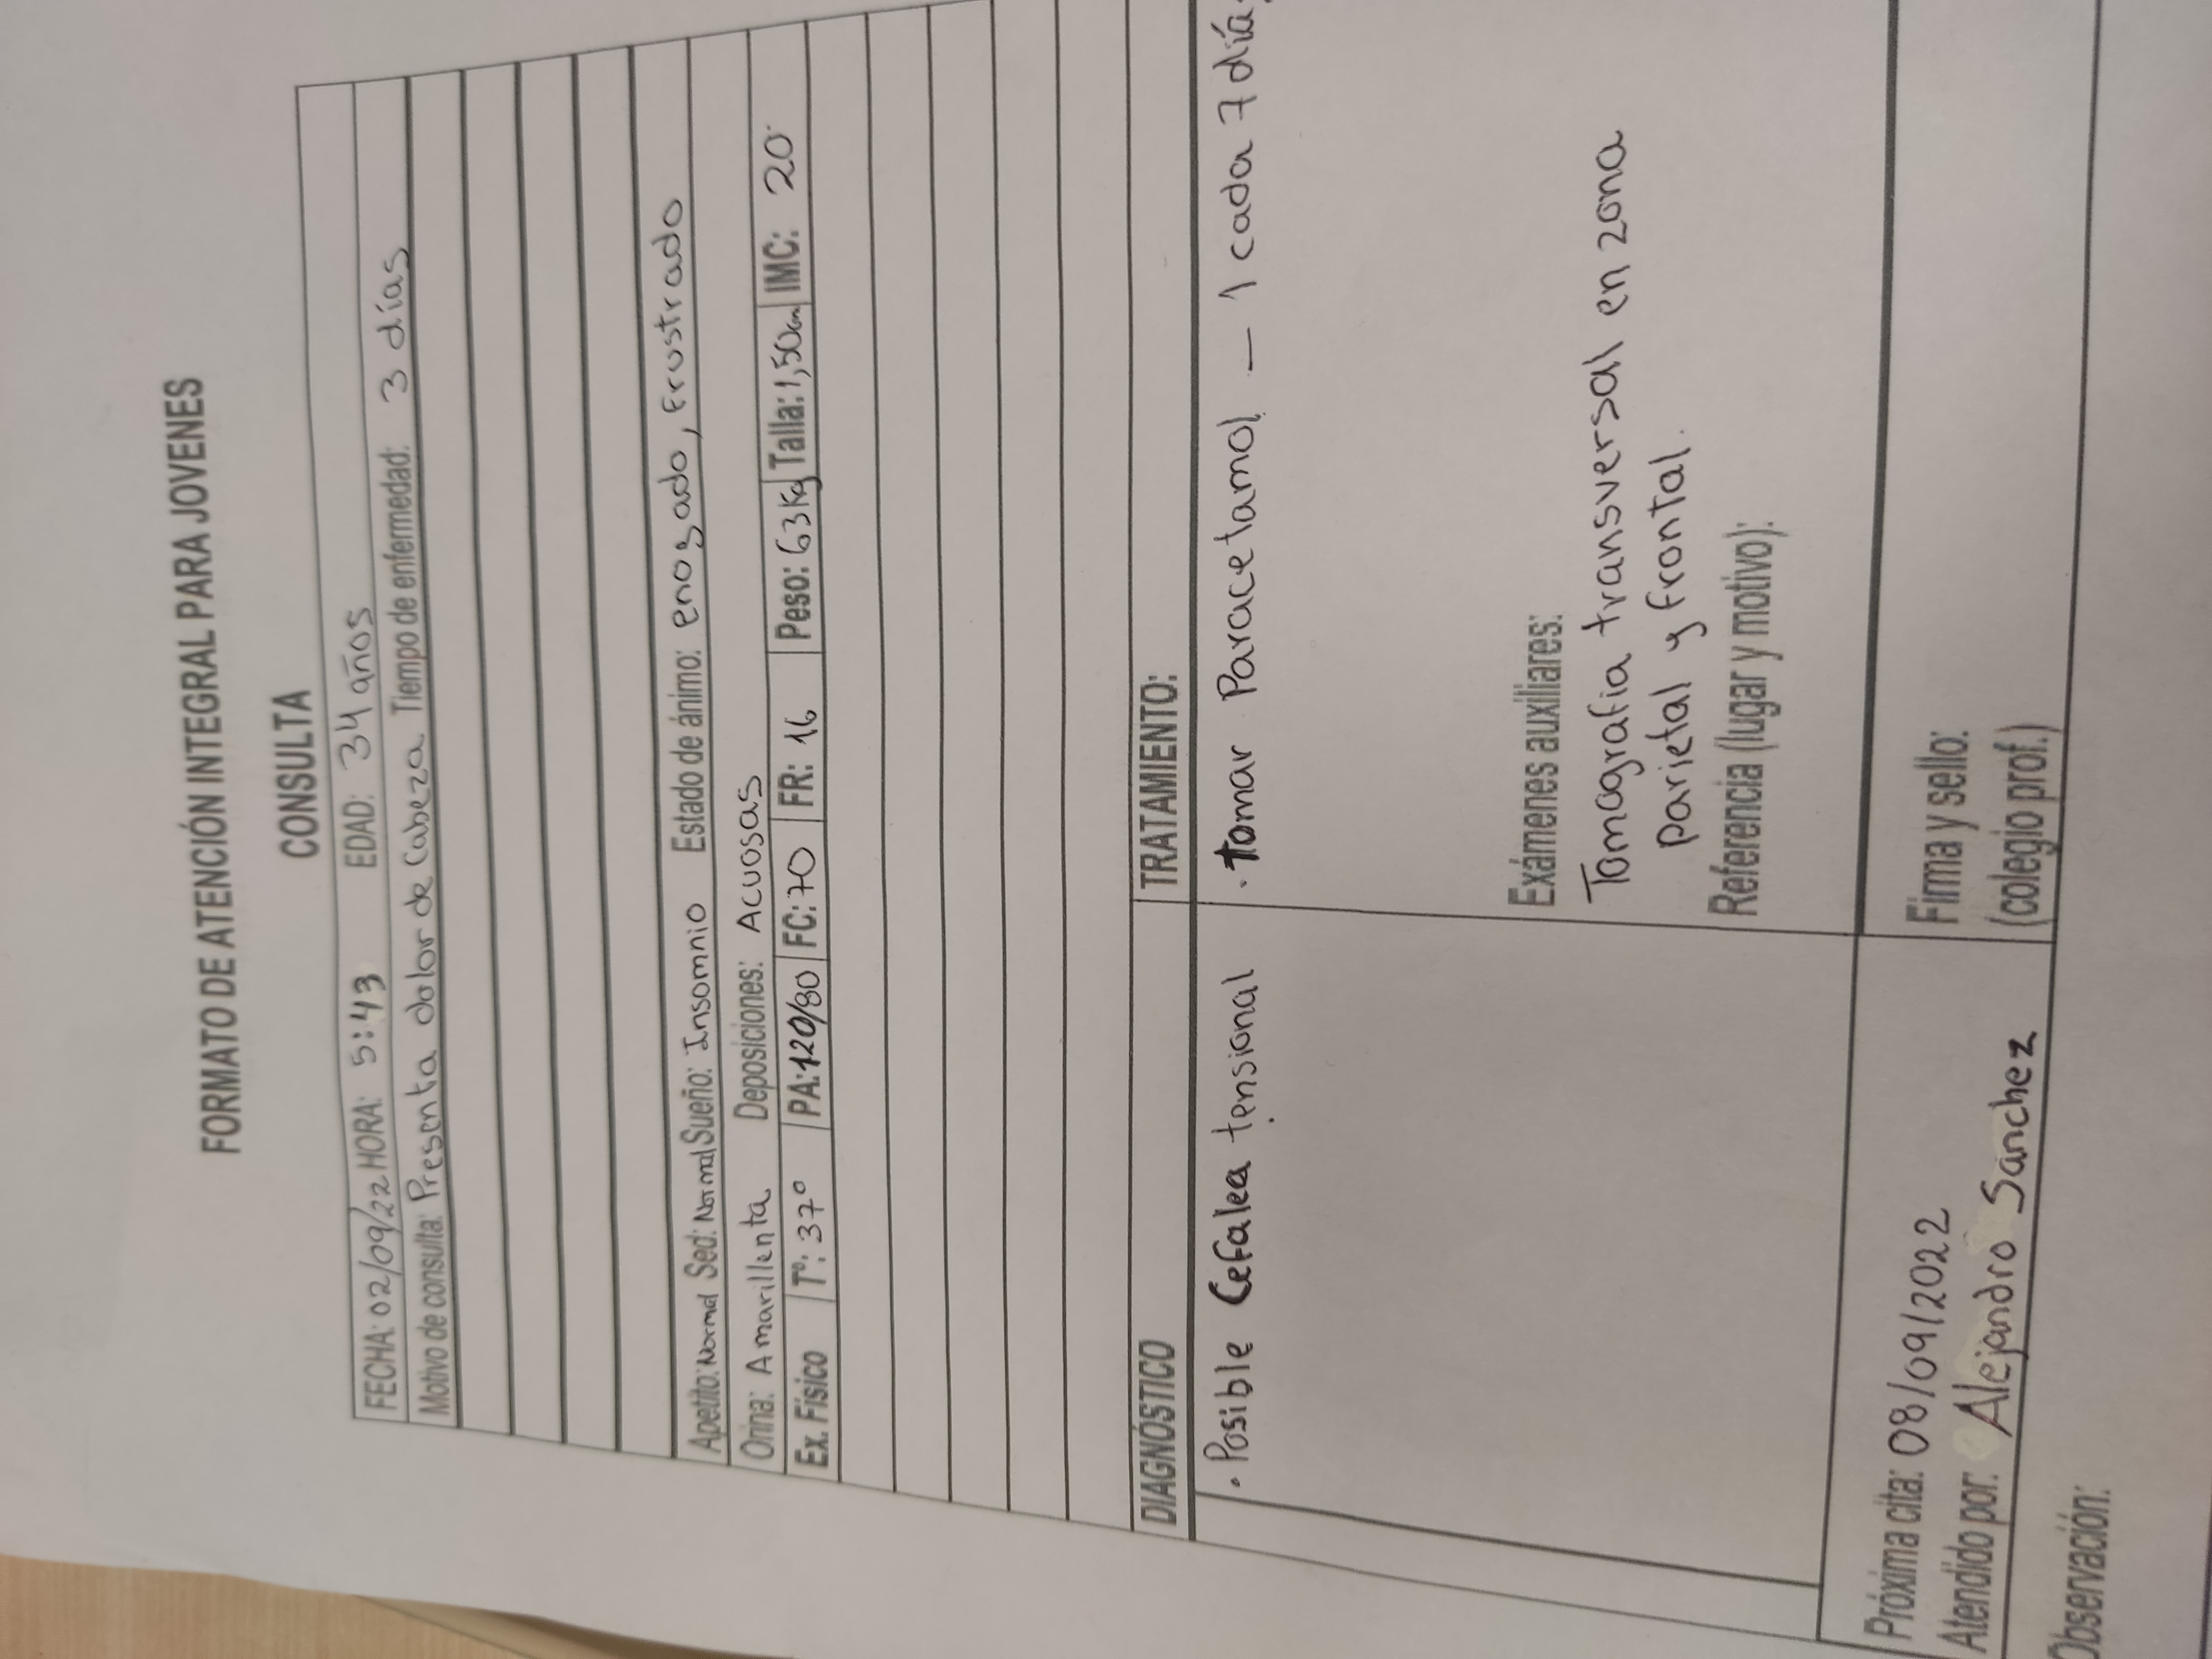 FORMATO DE ATENCIÓN INTEGRAL PARA JOVENES
CONSULTA
FECHA: 02/09/22 HORA: 5:43 EDAD: 34 años
Motivo de consulta: Presenta dolor de Cabeza Tiempo de enfermedad: 3 días
Apetito: Normal Sed: Normal Sueño: Insomnio Estado de ánimo: enozado, Frustrado
Orina: Amarillenta Deposiciones: Acuosas
Ex. Físico T°: 37° PA: 120/80 FC: 70 FR: 16 Peso: 63Kg Talla: 1,50cm IMC: 20
DIAGNÓSTICO TRATAMIENTO:
• Posible Cefalea tensional • tomar Paracetamol — 1 cada 7 día
Exámenes auxiliares:
Tomografia transversal en zona
parietal y frontal.
Referencia (lugar y motivo):
Próxima cita: 08/09/2022
Atendido por: Alejandro Sanchez
Firma y sello:
(colegio prof.)
Observación: